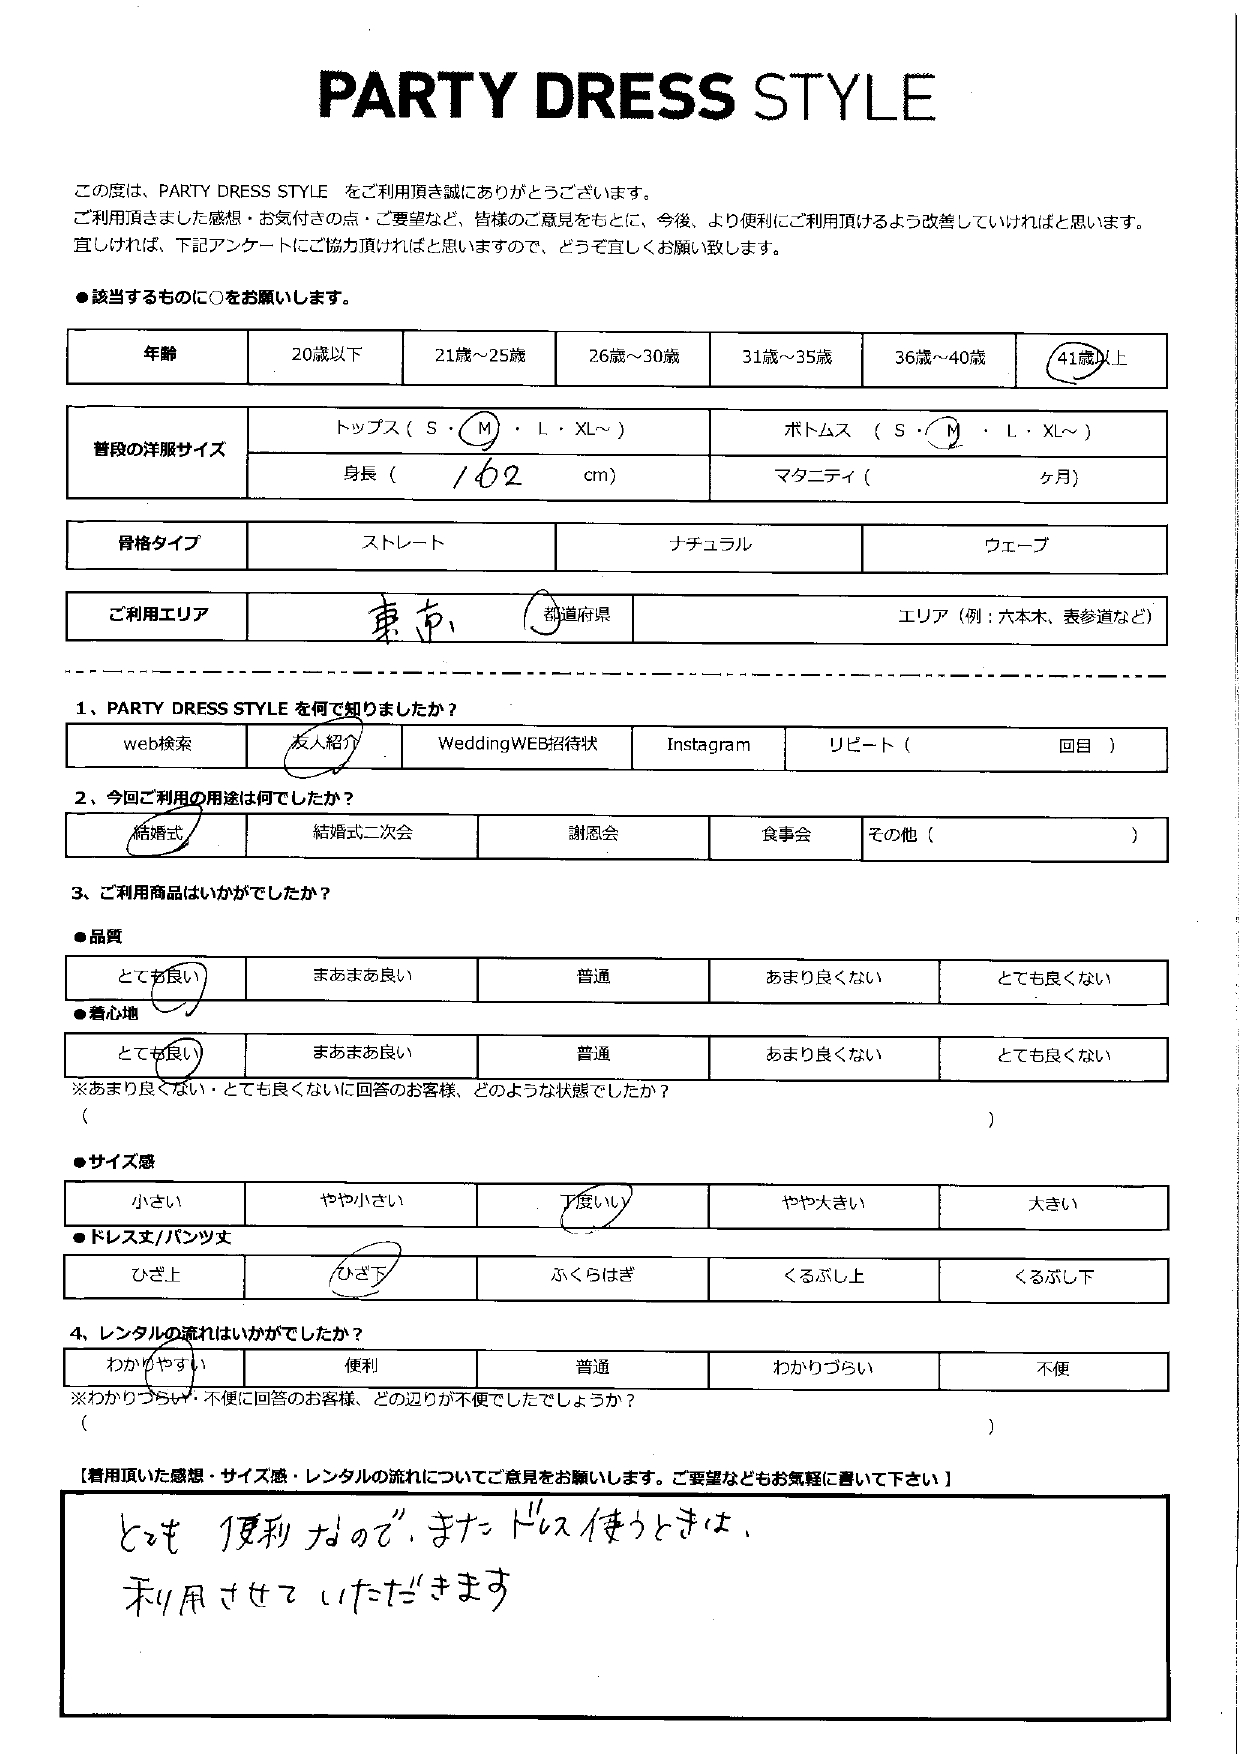 PARTY DRESS STYLE
この度は、PARTY DRESS STYLE をご利用頂き誠にありがとうございます。
ご利用頂きました感想・お気付きの点・ご要望など、皆様のご意見をもとに、今後、より便利にご利用頂けるよう改善していければと思います。
宜しければ、下記アンケートにご協力頂ければと思いますので、どうぞ宜しくお願い致します。
●該当するものに○をお願いします。
年齢 20歳以下 21歳～25歳 26歳～30歳 31歳～35歳 36歳～40歳 41歳以上
普段の洋服サイズ トップス ( S ・ M ・ L ・ XL～ ) ボトムス ( S ・ M ・ L ・ XL～ )
身長 ( 162 cm) マタニティ ( ヶ月)
骨格タイプ ストレート ナチュラル ウェーブ
ご利用エリア 東京 都道府県 エリア（例：六本木、表参道など）
1、PARTY DRESS STYLE を何で知りましたか？
web検索 友人紹介 WeddingWEB招待状 Instagram リピート ( 回目 )
2、今回ご利用の用途は何でしたか？
結婚式 結婚式二次会 謝恩会 食事会 その他 ( )
3、ご利用商品はいかがでしたか？
●品質
とても良い まあまあ良い 普通 あまり良くない とても良くない
●着心地
とても良い まあまあ良い 普通 あまり良くない とても良くない
※あまり良くない・とても良くないに回答のお客様、どのような状態でしたか？
( )
●サイズ感
小さい やや小さい 丁度いい やや大きい 大きい
●ドレス丈/パンツ丈
ひざ上 ひざ下 ふくらはぎ くるぶし上 くるぶし下
4、レンタルの流れはいかがでしたか？
わかりやすい 便利 普通 わかりづらい 不便
※わかりづらい・不便に回答のお客様、どの辺りが不便でしたでしょうか？
( )
【着用頂いた感想・サイズ感・レンタルの流れについてご意見をお願いします。ご要望などもお気軽に書いて下さい】
とても 便利なので、またドレス使うときは、
利用させていただきます